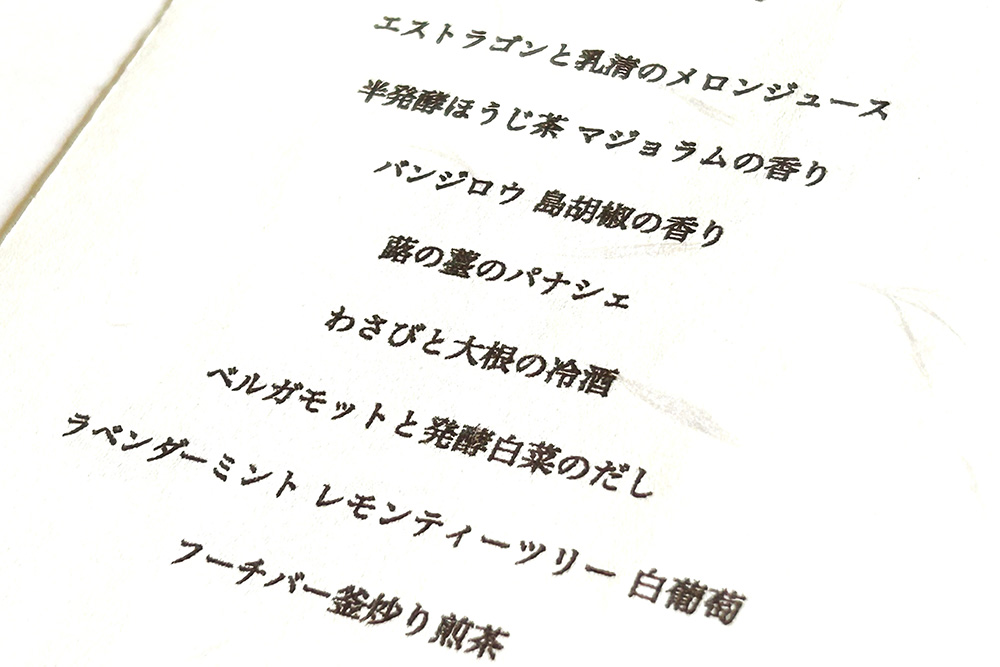 エストラゴンと乳清のメロンジュース
半発酵ほうじ茶 マジョラムの香り
バンジロウ 島胡椒の香り
蕗の薹のパナシェ
わさびと大根の冷酒
ベルガモットと発酵白菜のだし
ラベンダーミント レモンティーツリー 白葡萄
フーチバー釜炒り煎茶